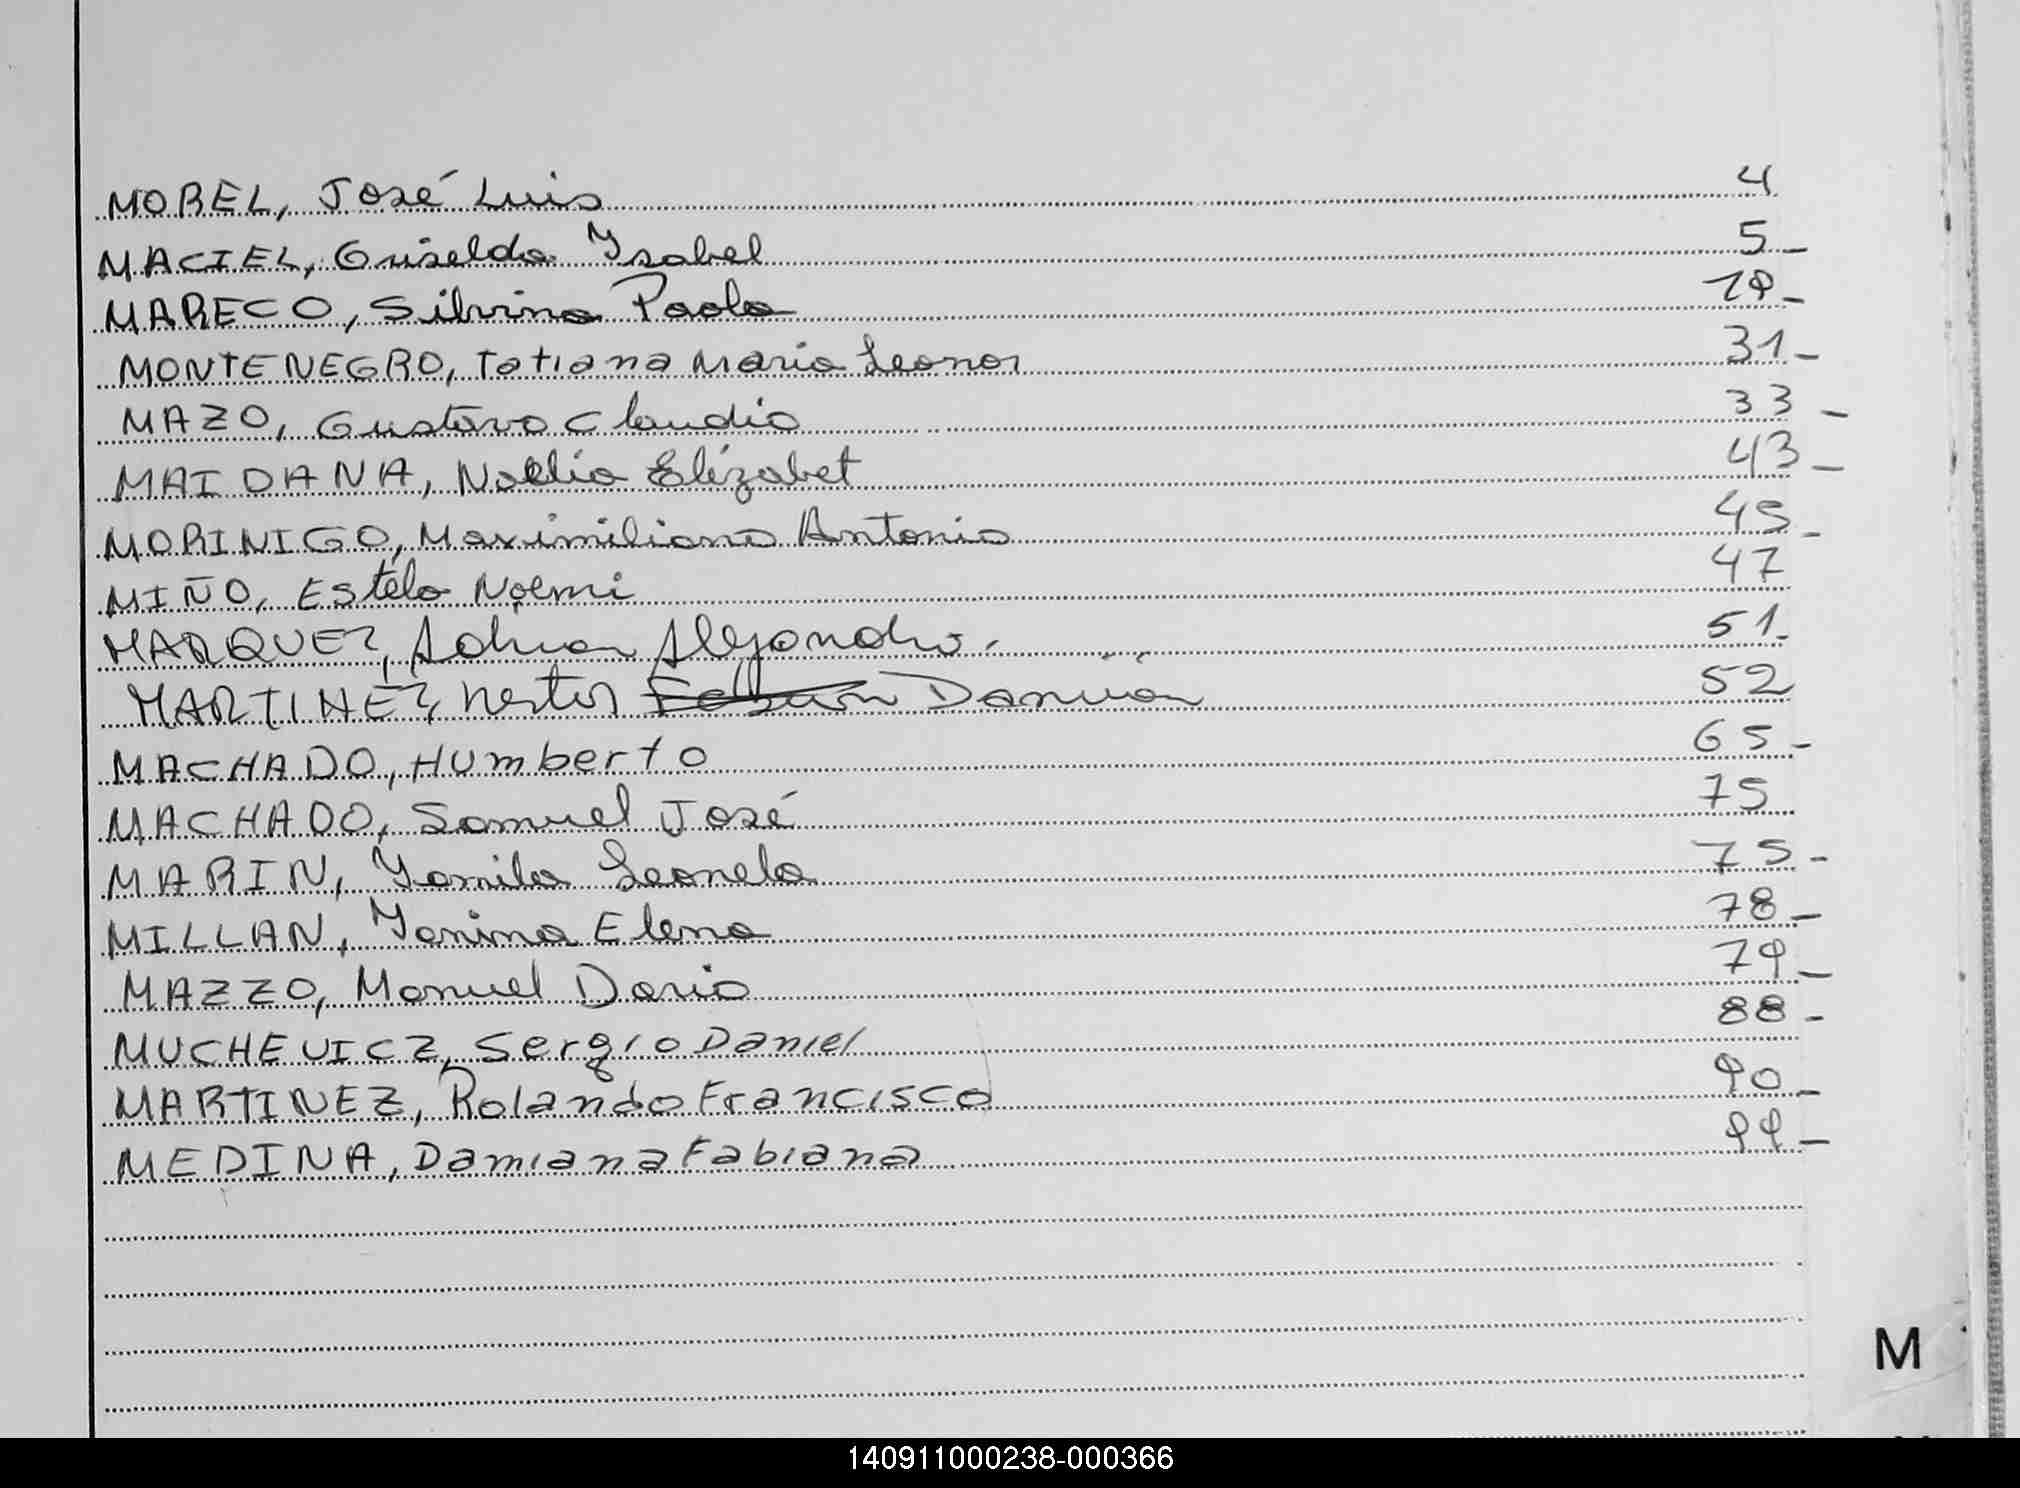 MOREL, José Luis 4
MACIEL, Griselda Ysabel 5-
MARECO, Silvina Paola 19-
MONTENEGRO, Tatiana Maria Leonor 31-
MAZO, Gustavo Claudio 33-
MAIDANA, Noelia Elizabet 43-
MORINIGO, Maximiliano Antonio 45-
MIÑO, Estela Noemi 47
MARQUEZ, Adrian Alejandro. 51-
MARTINEZ, Nestor Fabian Damián 52
MACHADO, Humberto 65-
MACHADO, Samuel José 75
MARIN, Yamila Leonela 75-
MILLAN, Yanina Elena 78-
MAZZO, Manuel Dario 79-
MUCHEVICZ, Sergio Daniel 88-
MARTINEZ, Rolando Francisco 90-
MEDINA, Damiana Fabiana 99-
M
140911000238-000366